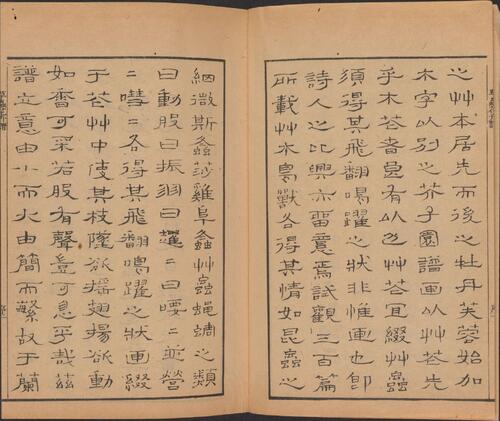 之艸本居先而後之牡丹芙蓉始加
木字以别之芥子園譜画以艸花先
乎木花者良有以也艸花宜綴艸蟲
須得其飛翻鳴躍之狀非惟画也即
詩人之比興亦留意焉試觀三百篇
所載艸木鳥獸各得其情如昆蟲之
細微斯螽莎雞阜螽艸蟲蝇蜩之類
曰動股曰振羽曰趯二曰喓二並營
二嘒二各得其飛翻鳴躍之狀画綴
于花艸中使其枝墜欲摇翅揚欲動
如香可采若股有聲豈可忽乎哉兹
譜立意由小而大由簡而繁故于蘭